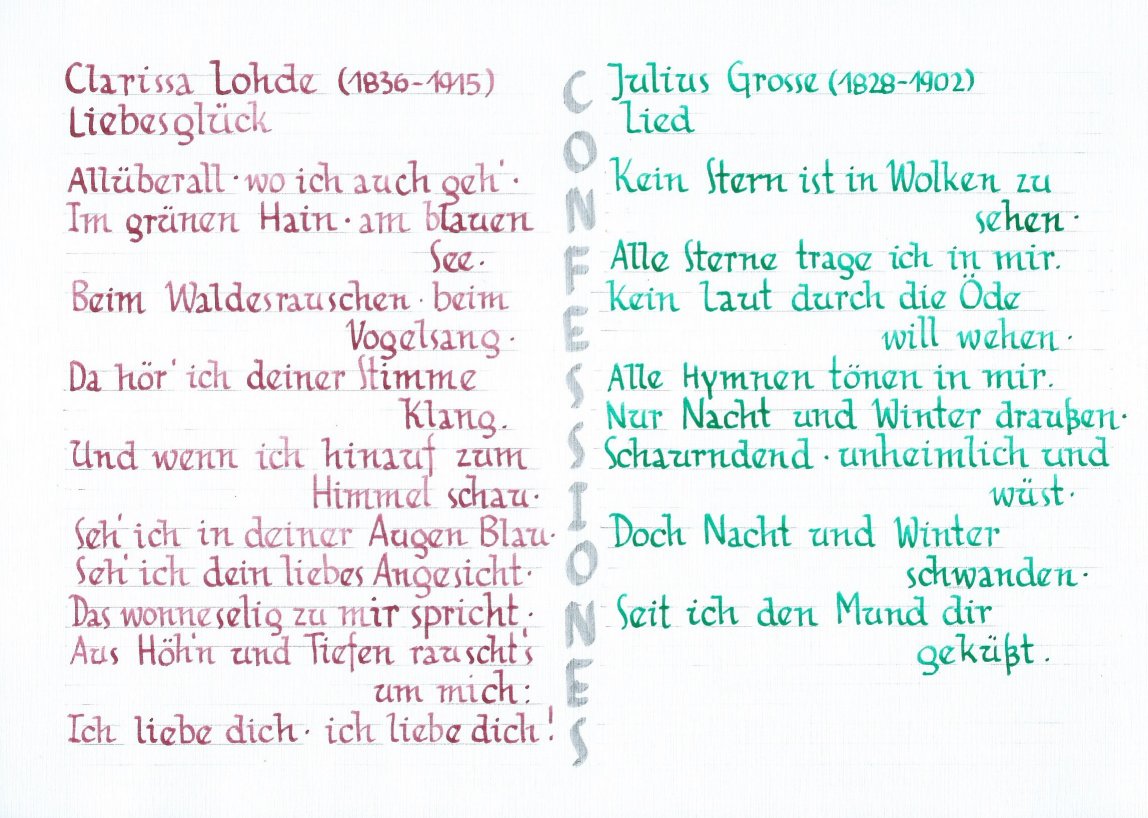 Clarissa Lohde (1836-1915)
Liebesglück
Allüberall · wo ich auch geh' ·
Im grünen Hain · am blauen
See ·
Beim Waldesrauschen · beim
Vogelsang ·
Da hör' ich deiner Stimme
Klang.
Und wenn ich hinauf zum
Himmel schau ·
Seh' ich in deiner Augen Blau ·
Seh' ich dein liebes Angesicht ·
Das wonneselig zu mir spricht ·
Aus Höh'n und Tiefen rauscht's
um mich:
Ich liebe dich · ich liebe dich!
CONFESSIONES
Julius Grosse (1828-1902)
Lied
Kein Stern ist in Wolken zu
sehen ·
Alle Sterne trage ich in mir.
Kein Laut durch die Öde
will wehen ·
Alle Hymnen tönen in mir.
Nur Nacht und Winter draußen ·
Schaurndend · unheimlich und
wüst ·
Doch Nacht und Winter
schwanden ·
Seit ich den Mund dir
geküßt.